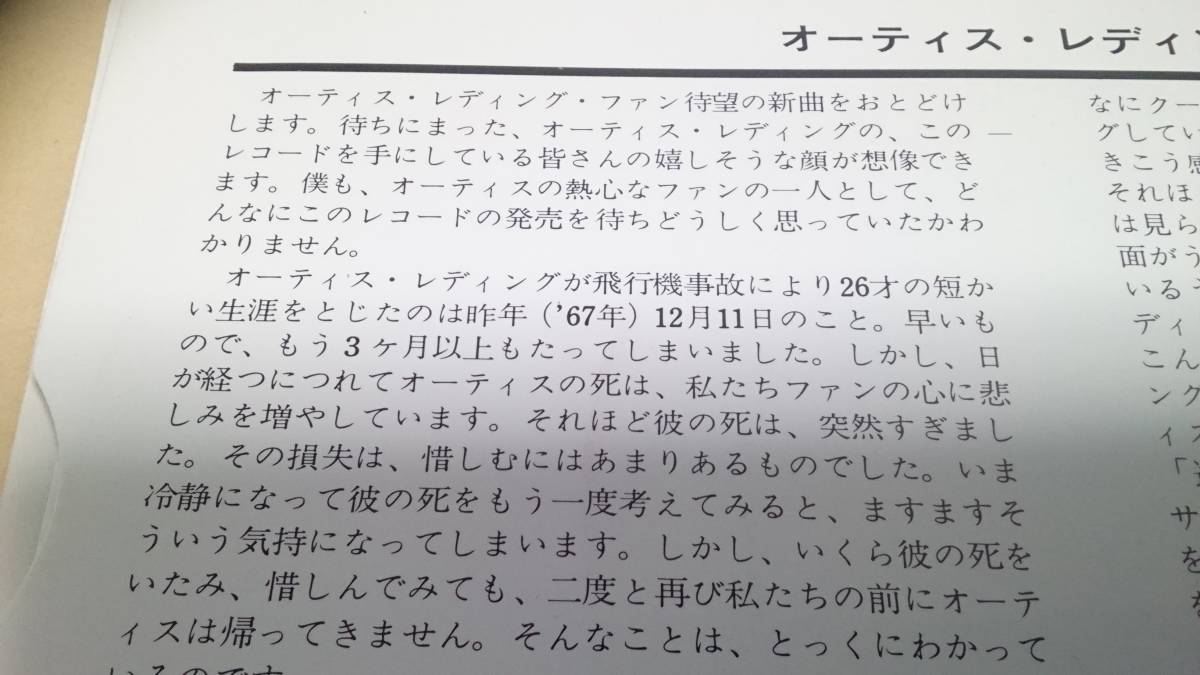 オーティス・レディン
オーティス・レディング・ファン待望の新曲をおとどけ
します。待ちにまった、オーティス・レディングの、この
レコードを手にしている皆さんの嬉しそうな顔が想像でき
ます。僕も、オーティスの熱心なファンの一人として、ど
んなにこのレコードの発売を待ちどうしく思っていたかわ
かりません。
オーティス・レディングが飛行機事故により26才の短か
い生涯をとじたのは昨年（'67年）12月11日のこと。早いも
ので、もう3ヶ月以上もたってしまいました。しかし、日
が経つにつれてオーティスの死は、私たちファンの心に悲
しみを増やしています。それほど彼の死は、突然すぎまし
た。その損失は、惜しむにはあまりあるものでした。いま
冷静になって彼の死をもう一度考えてみると、ますますそ
ういう気持になってしまいます。しかし、いくら彼の死を
いたみ、惜しんでみても、二度と再び私たちの前にオーテ
ィスは帰ってきません。そんなことは、とっくにわかって
いるのです
なにクー
グしてい
きこう感
それほ
は見ら
面がう
いる
ディ
こん
ング
ィス
「
サ
を